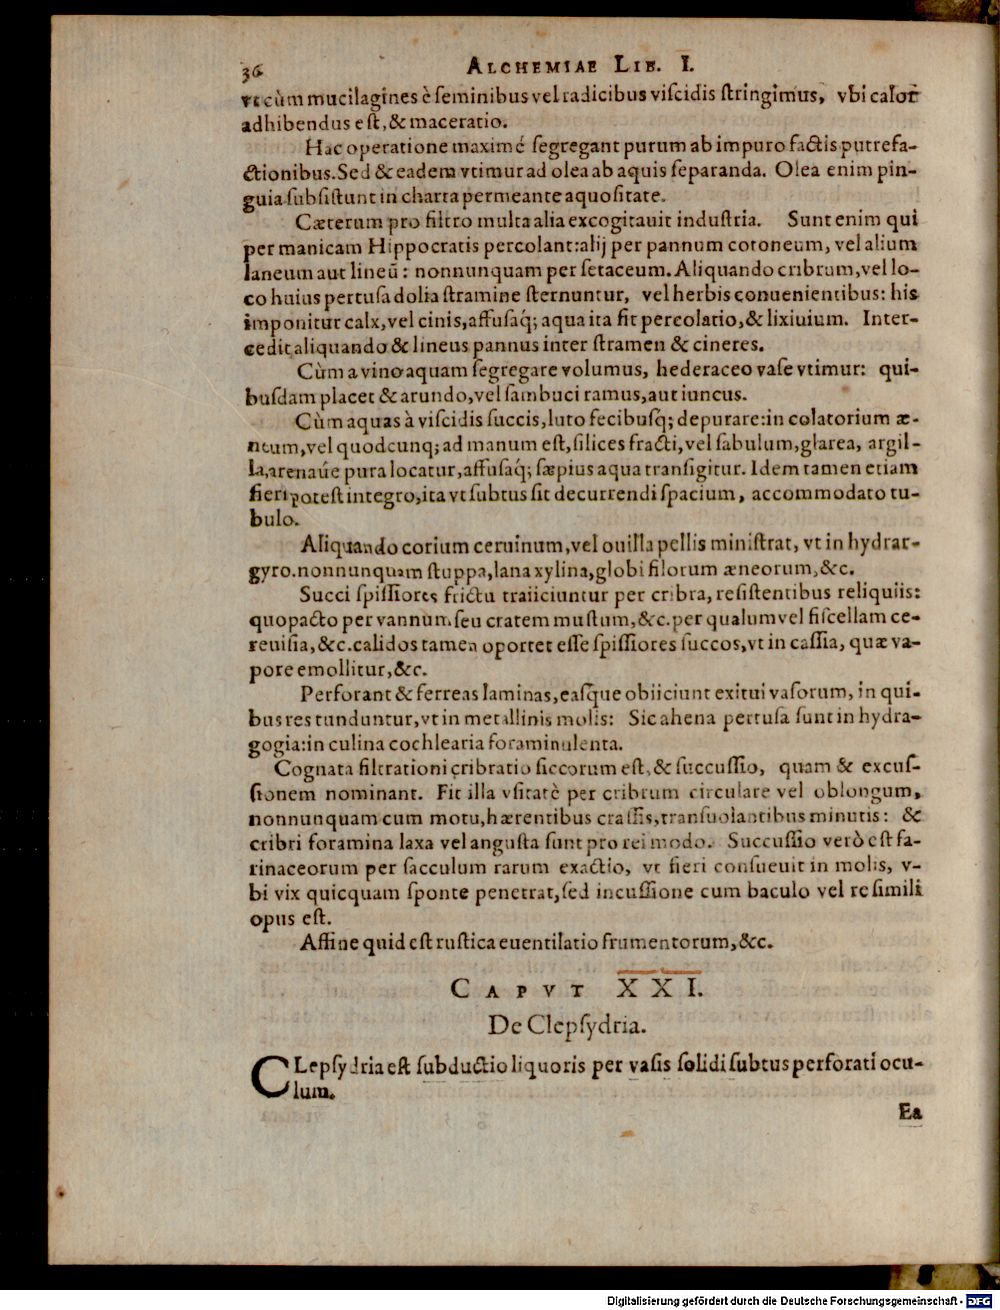 36 ALCHEMIAE LIB. I.
vt cùm mucilagines è ſeminibus vel radicibus viſcidis ſtringimus, vbi calor
adhibendus eſt, & maceratio.
Hac operatione maximé ſegregant purum ab impuro factis putrefa-
ctionibus. Sed & eadem vtimur ad olea ab aquis ſeparanda. Olea enim pin-
guia ſubſiſtunt in charta permeante aquoſitate.
Cæterum pro filtro multa alia excogitauit induſtria. Sunt enim qui
per manicam Hippocratis percolant: alij per pannum cotoneum, vel alium
laneum aut lineũ: nonnunquam per ſetaceum. Aliquando cribrum, vel lo-
co huius pertuſa dolia ſtramine ſternuntur, vel herbis conuenientibus: his
imponitur calx, vel cinis, affuſaq́; aqua ita fit percolatio, & lixiuium. Inter-
cedit aliquando & lineus pannus inter ſtramen & cineres.
Cùm a vino aquam ſegregare volumus, hederaceo vaſe vtimur: qui-
buſdam placet & arundo, vel ſambuci ramus, aut iuncus.
Cùm aquas à viſcidis ſuccis, luto fecibusq; depurare: in colatorium æ-
neum, vel quodcunq; ad manum eſt, ſilices fracti, vel ſabulum, glarea, argil-
la, arenaúe pura locatur, affuſaq́; ſæpius aqua tranſigitur. Idem tamen etiam
fieri poteſt integro, ita vt ſubtus ſit decurrendi ſpacium, accommodato tu-
bulo.
Aliquando corium ceruinum, vel ouilla pellis miniſtrat, vt in hydrar-
gyro. nonnunquam ſtuppa, lana xylina, globi filorum æneorum, &c.
Succi ſpiſſiores frictu traiiciuntur per cribra, reſiſtentibus reliquiis:
quo pacto per vannum ſeu cratem muſtum, &c. per qualum vel fiſcellam ce-
reuiſia, &c. calidos tamen oportet eſſe ſpiſſiores ſuccos, vt in caſſia, quæ va-
pore emollitur, &c.
Perforant & ferreas laminas, eaſque obiiciunt exitui vaſorum, in qui-
bus res tunduntur, vt in metallinis molis: Sic ahena pertuſa ſunt in hydra-
gogia: in culina cochlearia foraminulenta.
Cognata filtrationi cribratio ſiccorum eſt, & ſuccuſſio, quam & excuſ-
ſionem nominant. Fit illa vſitatè per cribrum circulare vel oblongum,
nonnunquam cum motu, hærentibus craſſis, tranſuolantibus minutis: &
cribri foramina laxa vel anguſta ſunt pro rei modo. Succuſſio verò eſt fa-
rinaceorum per ſacculum rarum exactio, vt fieri conſueuit in molis, v-
bi vix quicquam ſponte penetrat, ſed incuſſione cum baculo vel re ſimili
opus eſt.
Affine quid eſt ruſtica euentilatio frumentorum, &c.
CAPVT XXI.
De Clepſydria.
CLepſydria eſt ſubductio liquoris per vaſis ſolidi ſubtus perforati ocu-
lum.
Ea
Digitalisierung gefördert durch die Deutsche Forschungsgemeinschaft - DFG